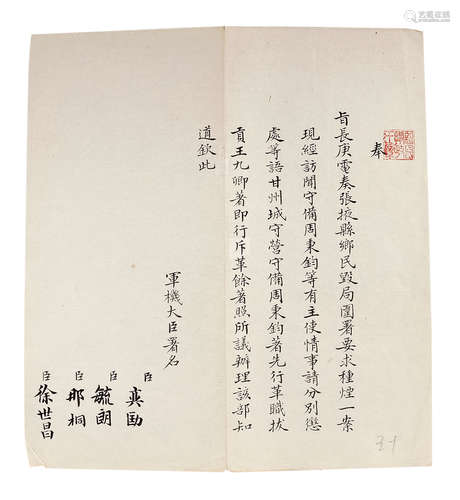 奉
旨長庚電奏張掖縣鄉民毀局圍署要求種煙一案
現經訪聞守備周東鈞等有主使情事請分別懲
處等語甘州城守營守備周東鈞著先行革職拔
貢王九卿著即行斥革餘著照所議辦理該部知
道欽此
軍機大臣署名
臣 奕劻
臣 毓朗
臣 那桐
臣 徐世昌
艺典在线